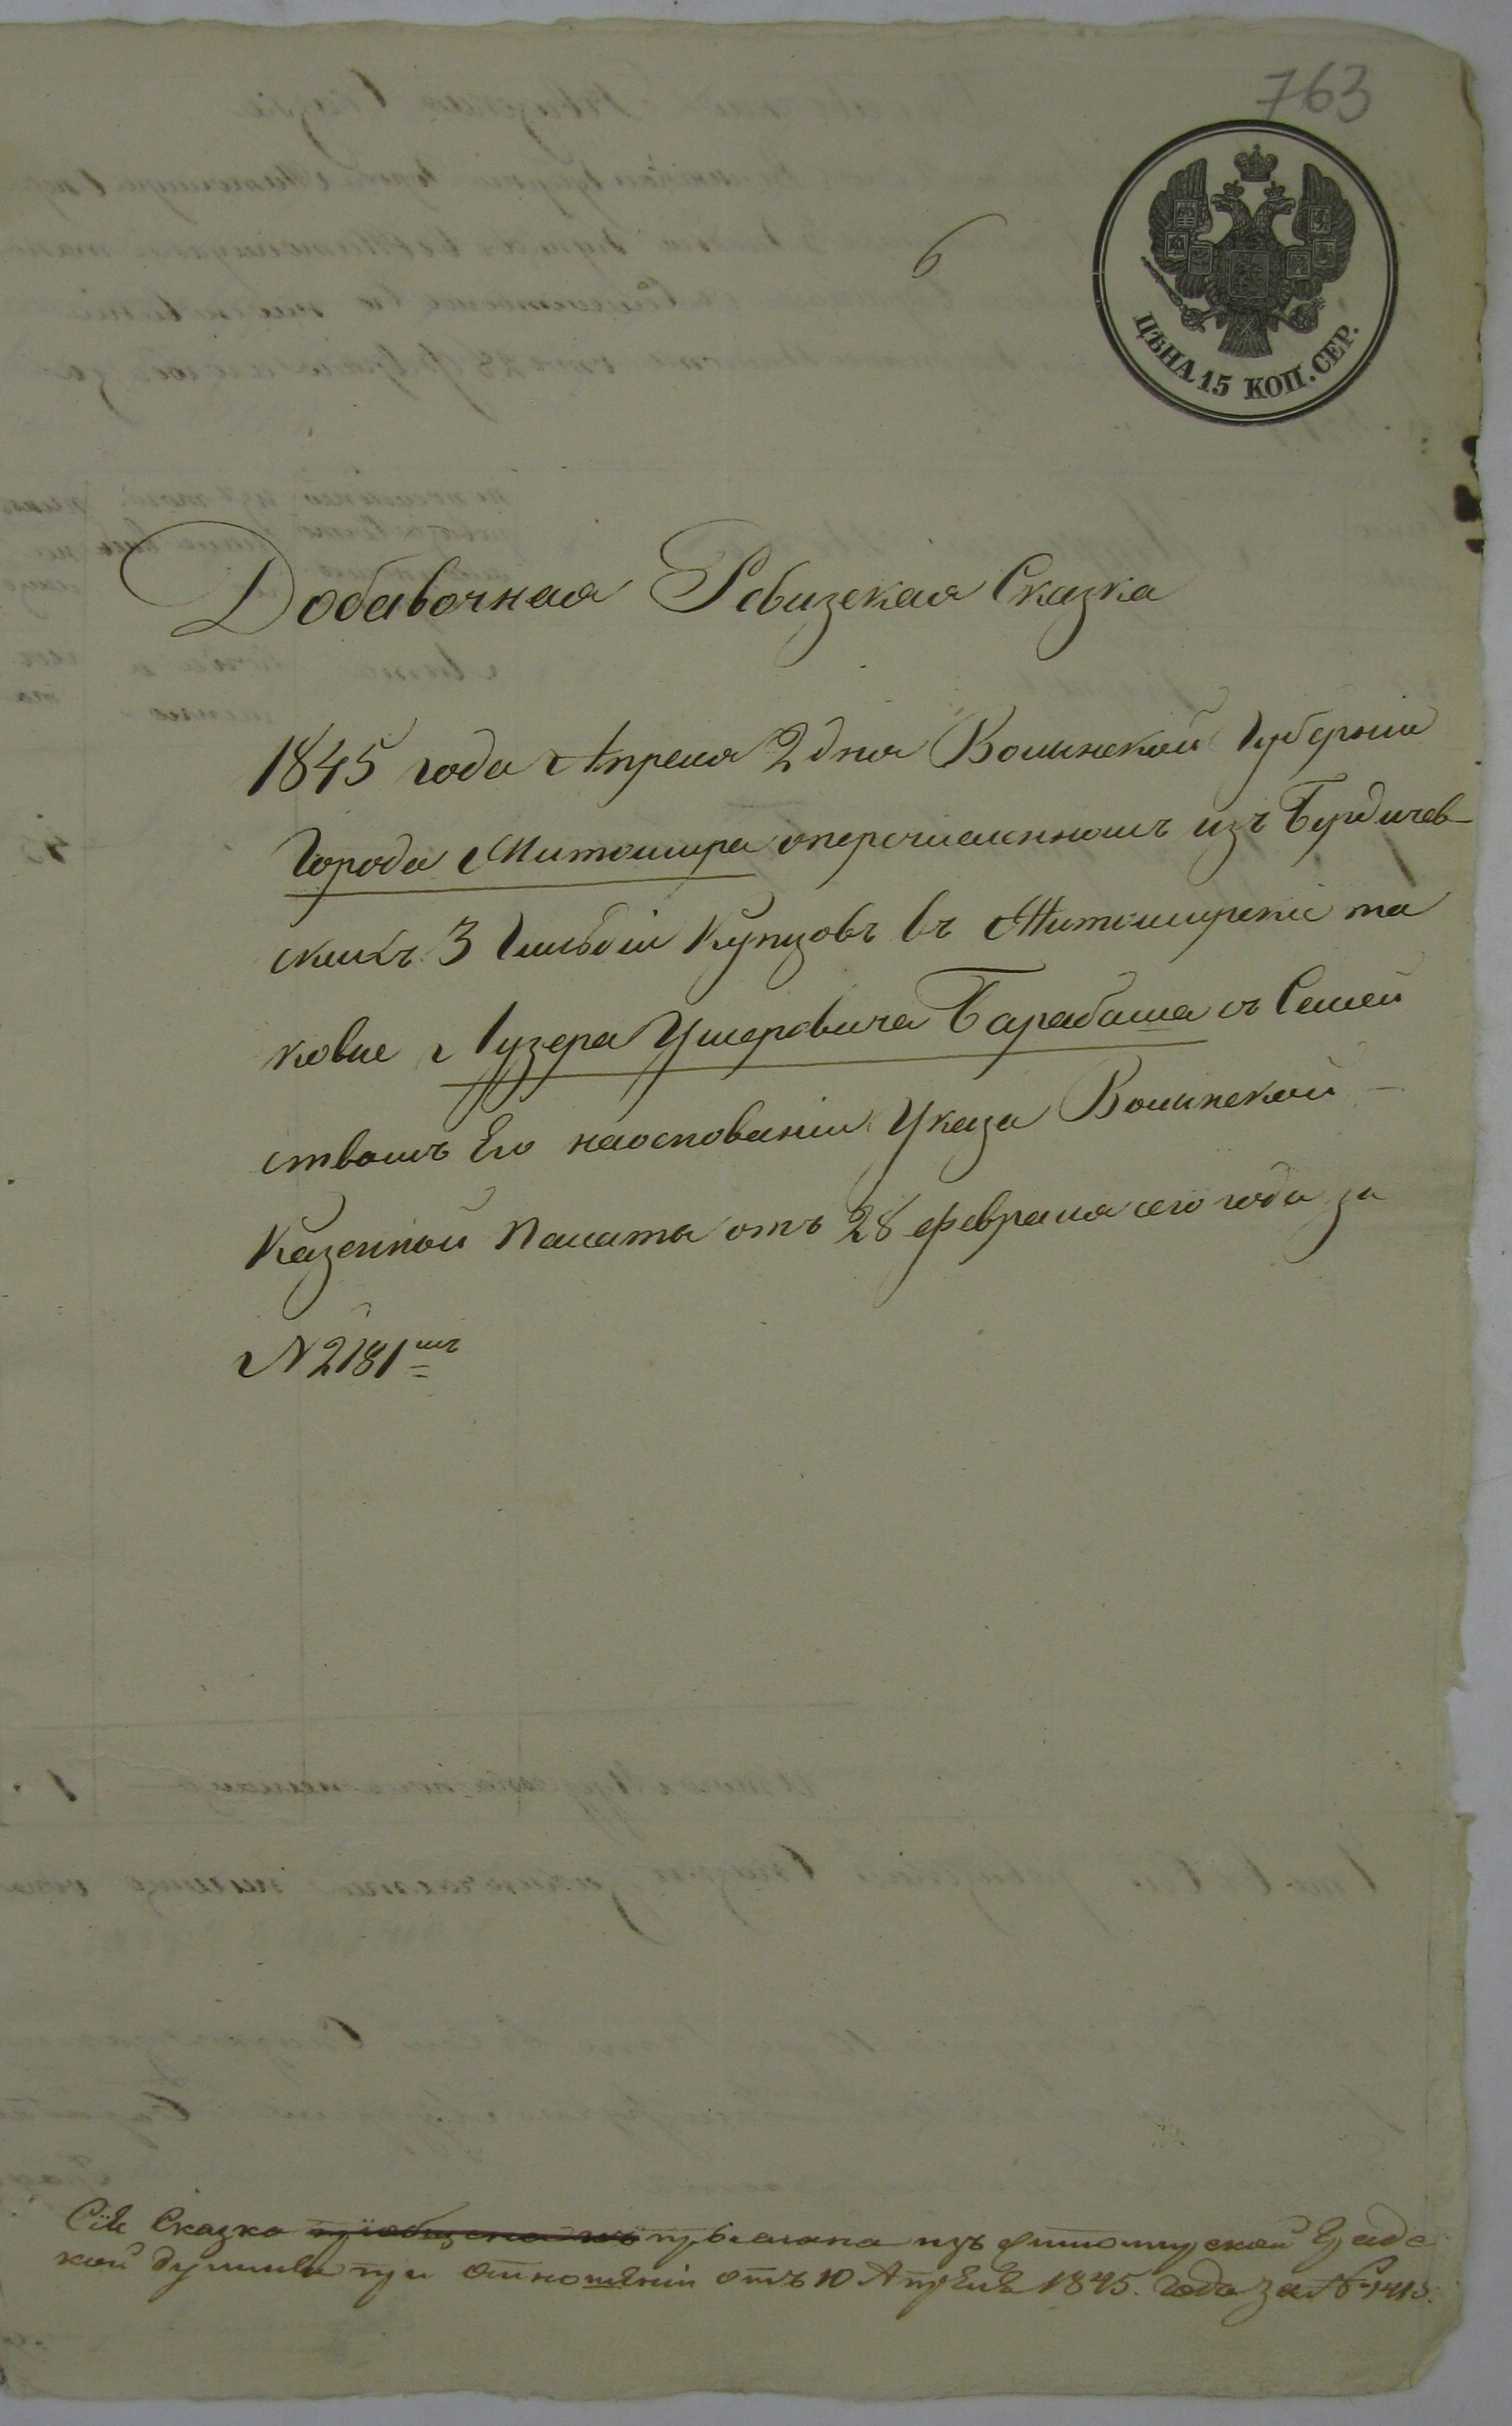 763
6
ЦѢНА 15 КОП. СЕР.
Добавочная Ревизская Сказка
1845 года Апреля 2 дня Волынской Губерніи
Города Житомира оперечисленномъ изъ Бердичев-
скихъ 3 Гильдіи Купцовъ въ Житомирскіе та
ковые Лузера Умеровича Барабаша съ Семей
ствомъ Его наоснованіи Указа Волынской
Казенной Палаты отъ 28 февраля сего года за
N 2181мъ
Сія Сказка прислана изъ Житомирской Градс
кой думы при отношеніи отъ 10 Апреля 1845. года за №